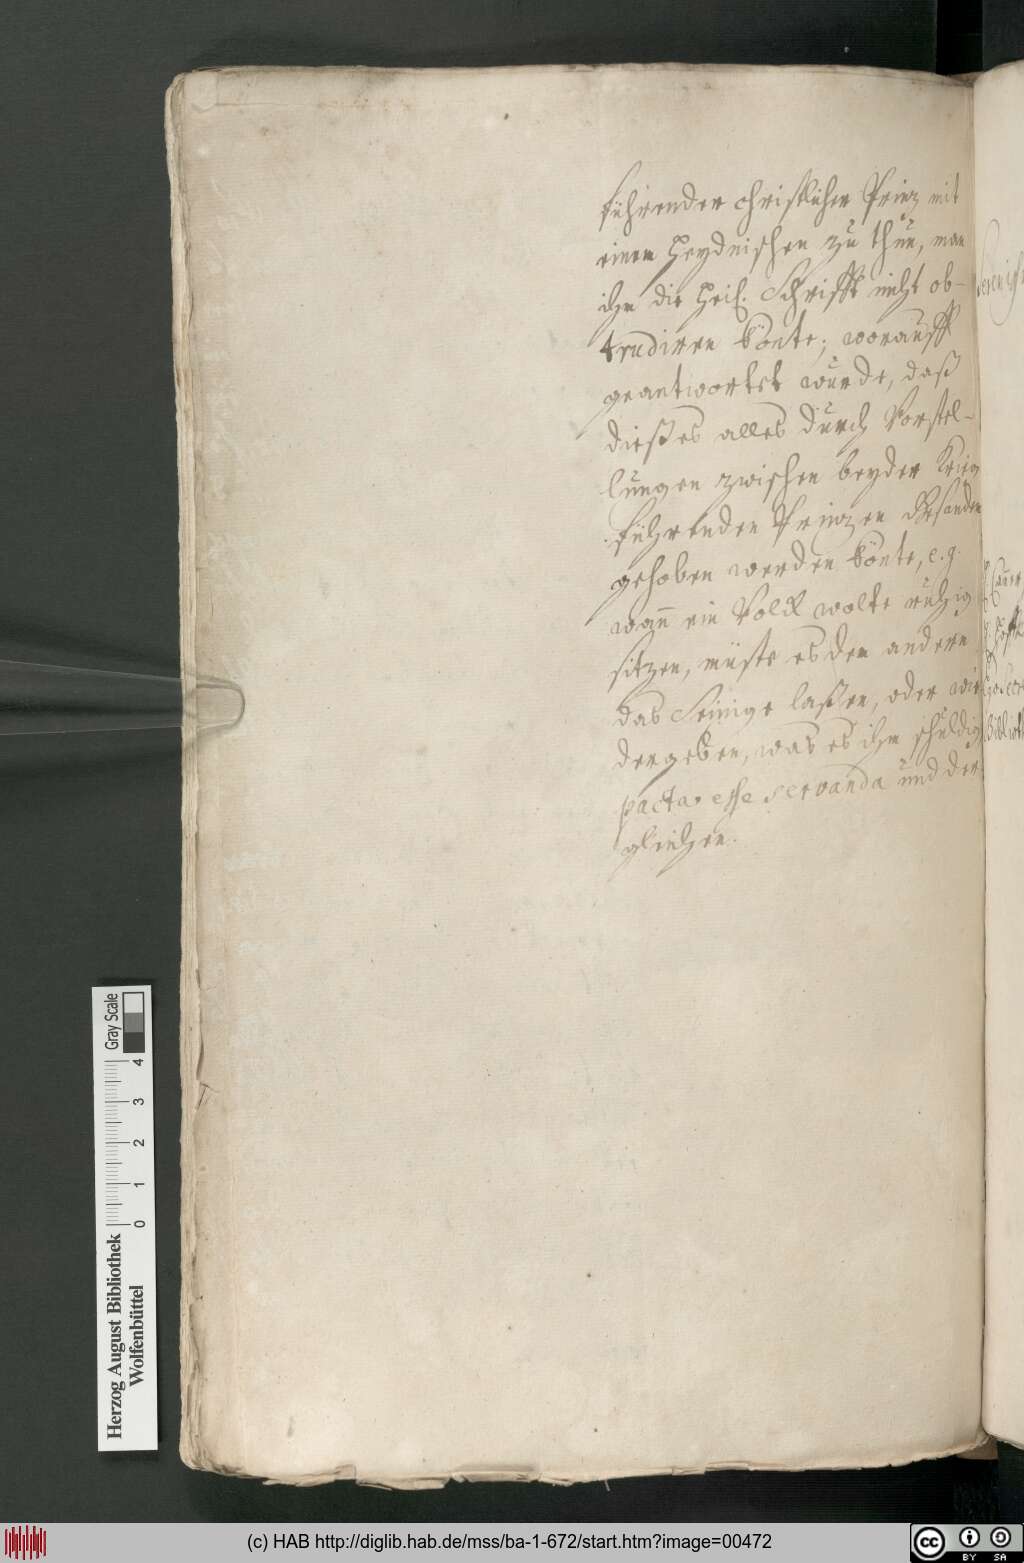 führender christlicher Prinz mit
einem Heydnischen zu thun, man
ihm die Heil. Schrifft nicht ob-
trudiren könte; worauff
geantwortet wurde, daß
dießes alles durch Vorstel-
lungen zwischen beyder Krieg
führenden Prinzen Gesanden
gehoben werden könte, e. g.
wann ein Volck wolte ruhig
sitzen, müste es dem andern
das Seinige laßen, oder wie
dergeben, was es ihm schuldig
pacta esse servanda und der
gleichen.
Herzog August Bibliothek
Wolfenbüttel
0 1 2 3 4
Gray Scale
(c) HAB http://diglib.hab.de/mss/ba-1-672/start.htm?image=00472
cc BY SA